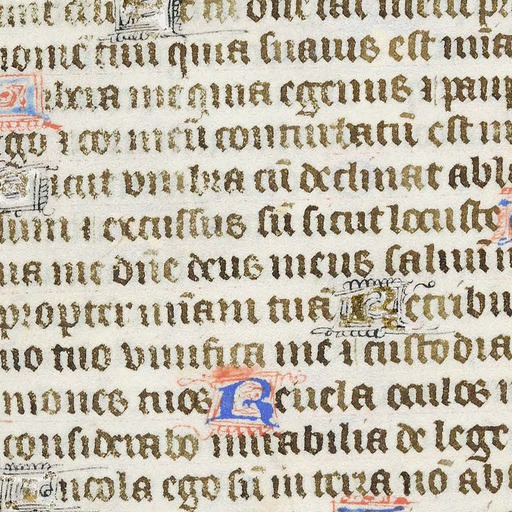 nomē tuū quia suauis est mīa
Libera me quia egenus ⁊ paup
ego ⁊ cor meū conturbatū est in
Sicut vmbra cū declinat abla
sum ⁊ excussus sū sicut locuste
uua me dn̄e deus meus saluū
propter mīam tuā Retribu
uo tuo viuifica me ⁊ custodia
mones tuos Reuela oculos
considerabo mirabilia de lege
Incola ego sū in terra nō abs